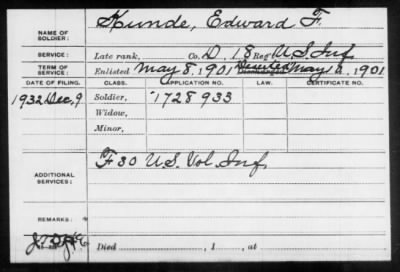 NAME OF SOLDIER: Kunde, Edward F.
SERVICE: Late rank, Co. D, 18 Reg't U.S. Inf.
TERM OF SERVICE: Enlisted May 8, 1901 Deserted May 12, 1901
DATE OF FILING. CLASS. APPLICATION NO. LAW. CERTIFICATE NO.
1932 Dec, 9 Soldier, 1728933
Widow,
Minor,
ADDITIONAL SERVICES: F 30 U.S. Vol. Inf.
REMARKS:
Died , 1 , at